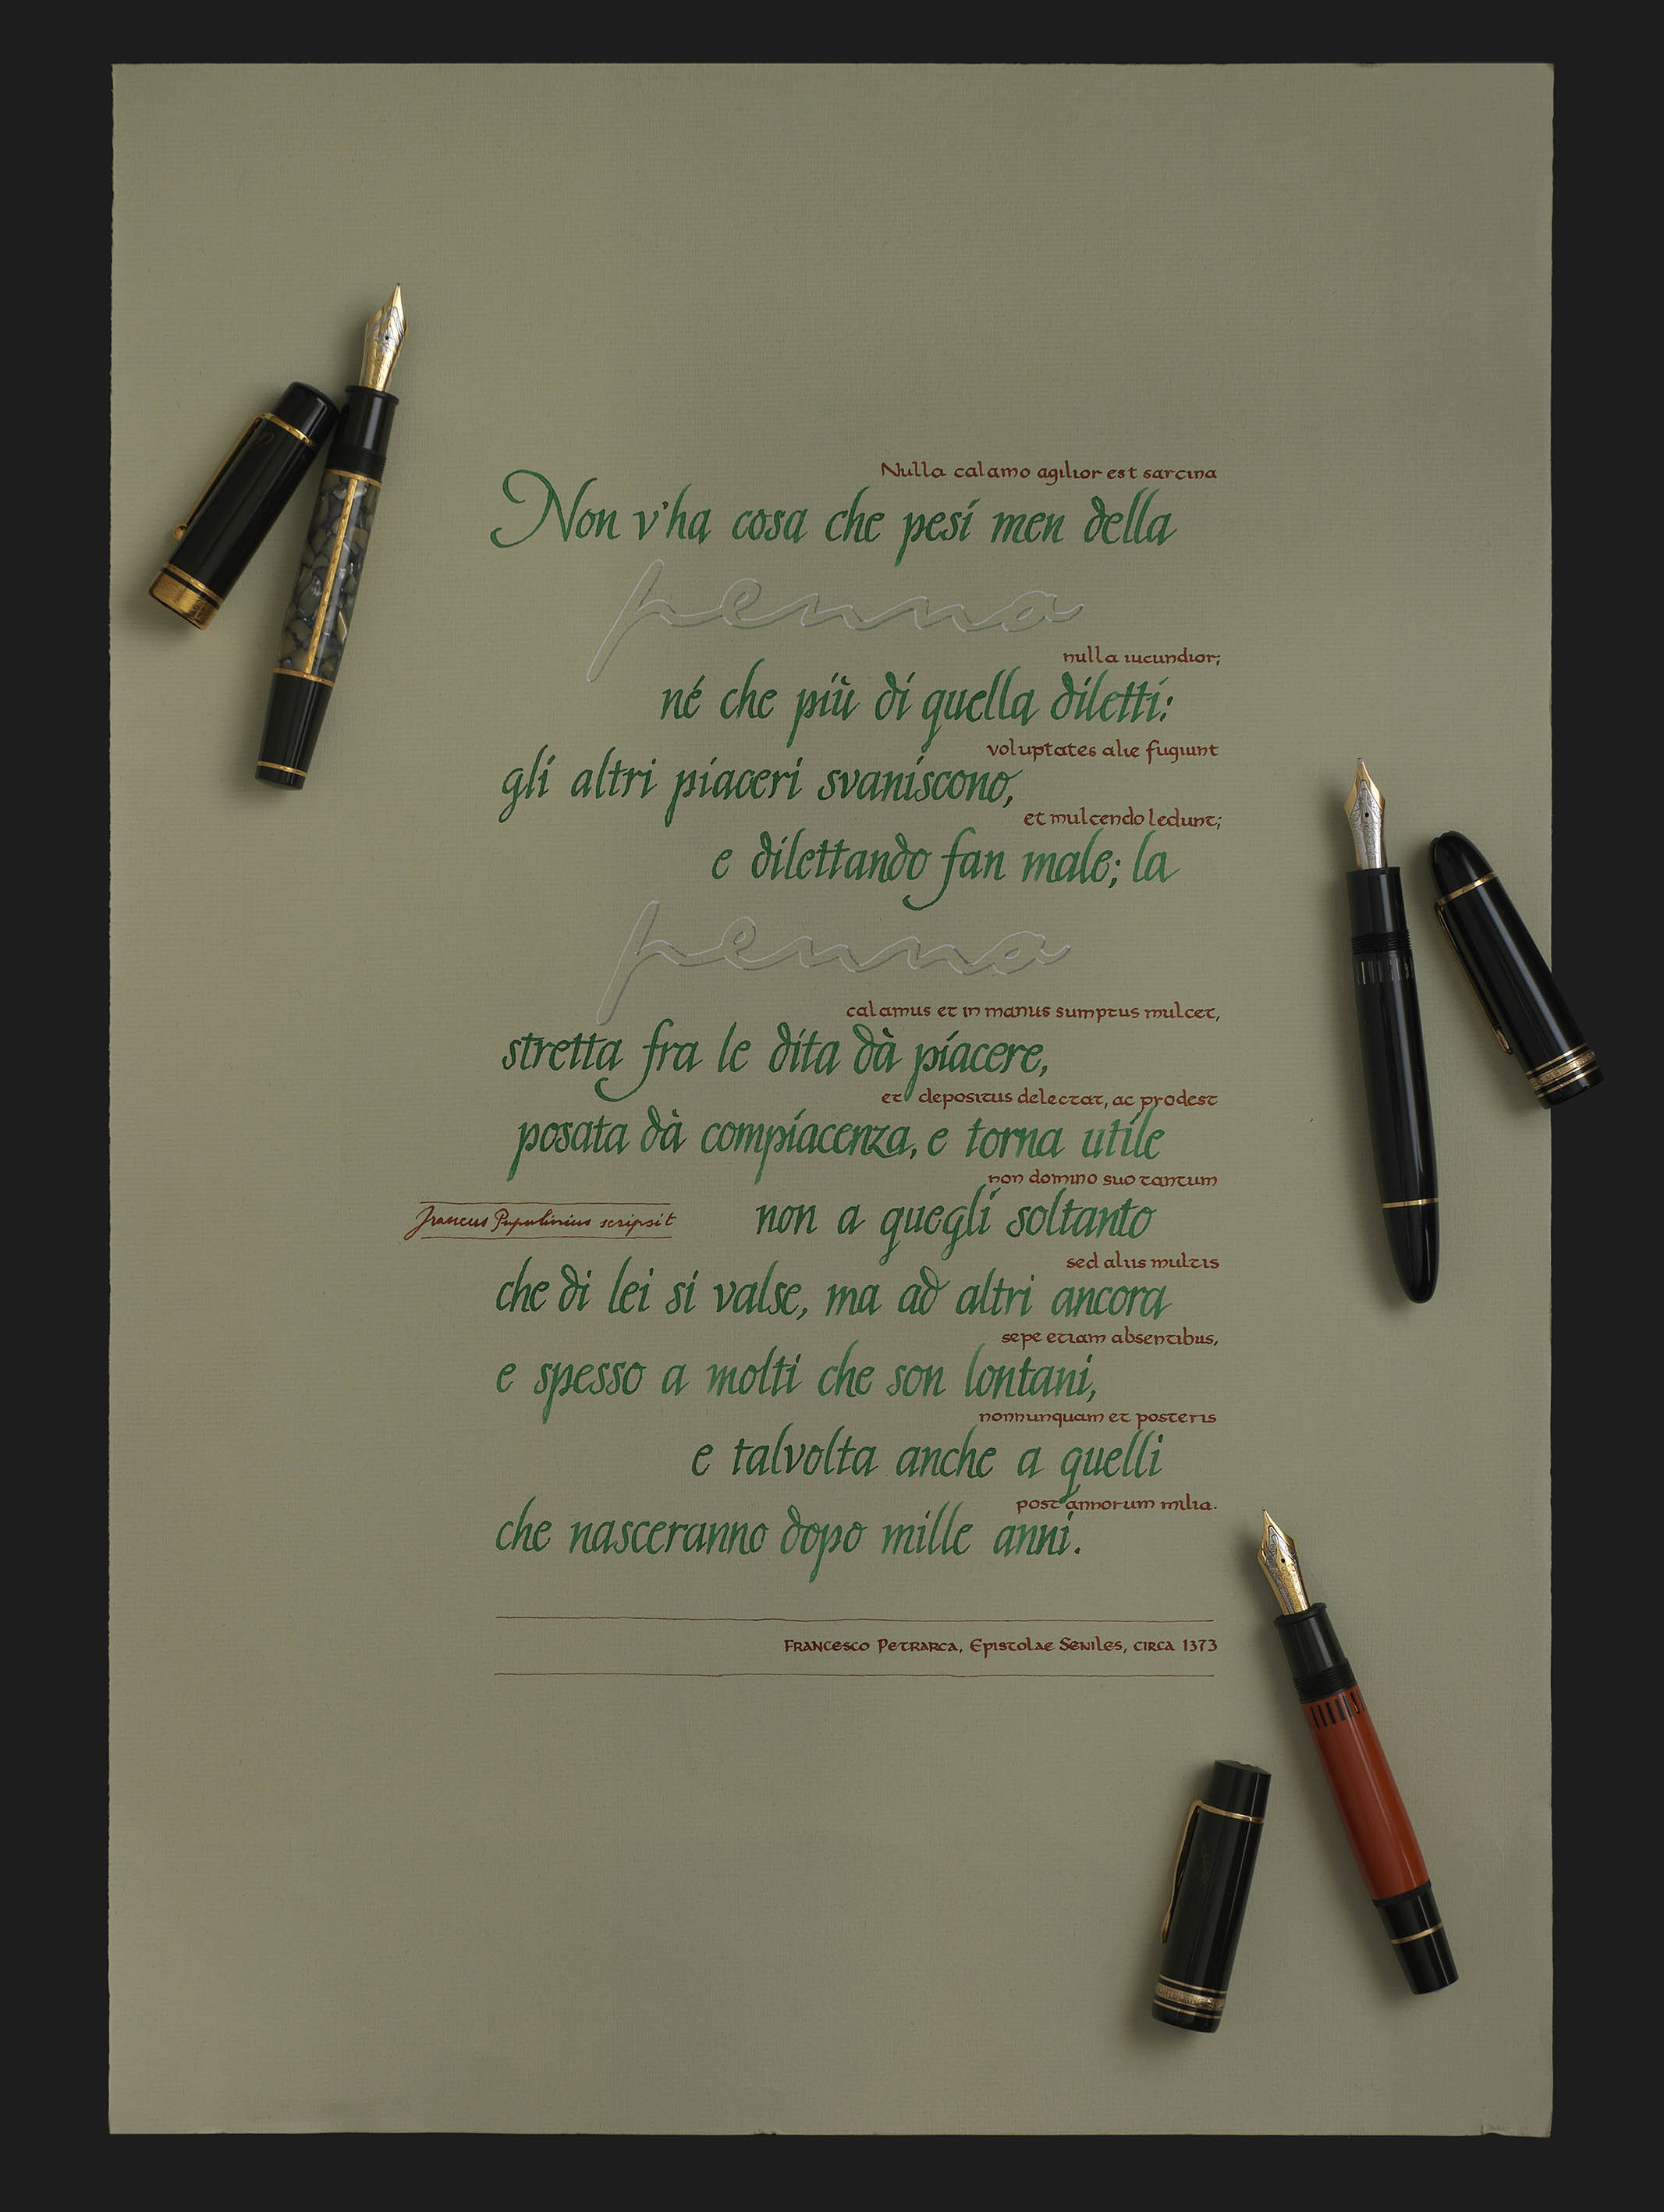 Nulla calamo agilior est sarcina
Non v'ha cosa che pesi men della
penna
nulla iucundior;
né che più di quella diletti:
voluptates alie fugiunt
gli altri piaceri svaniscono,
et mulcendo ledunt;
e dilettando fan male; la
penna
calamus et in manus sumptus mulcet,
stretta fra le dita dà piacere,
et depositus delectat, ac prodest
posata dà compiacenza, e torna utile
non domino suo tantum
non a quegli soltanto
Francus Papulinius scripsit
sed aliis multis
che di lei si valse, ma ad altri ancora
sepe etiam absentibus,
e spesso a molti che son lontani,
nonnunquam et posteris
e talvolta anche a quelli
post annorum milia.
che nasceranno dopo mille anni.
Francesco Petrarca, Epistolae Seniles, circa 1373